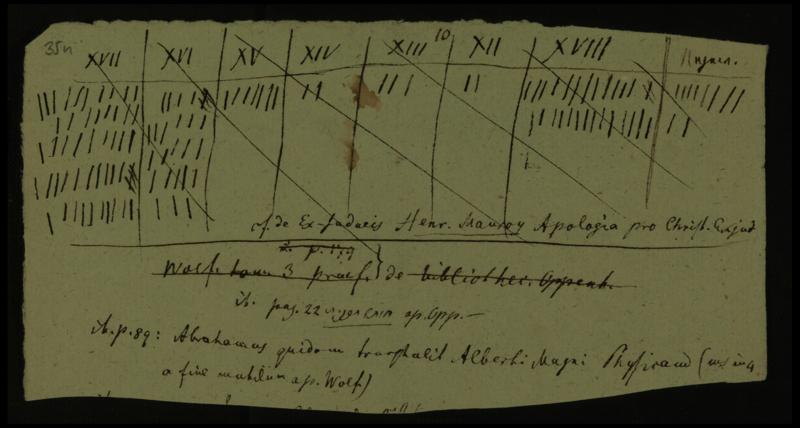 35n
XVII XVI XV XIV XIII 10 XII XVIII
cf. de Ex-Judaeis Henr. Mauroy Apologia pro Christ. Exjud
Wolf. tom 3 praef. } de bibliothec. Oppenh.
ib. pag. 22 ap. Opp. —
ib. p. 89: Abrahamus quidam transtulit Alberti Magni Physicam (ms in 4
a fine ap. Wolf)